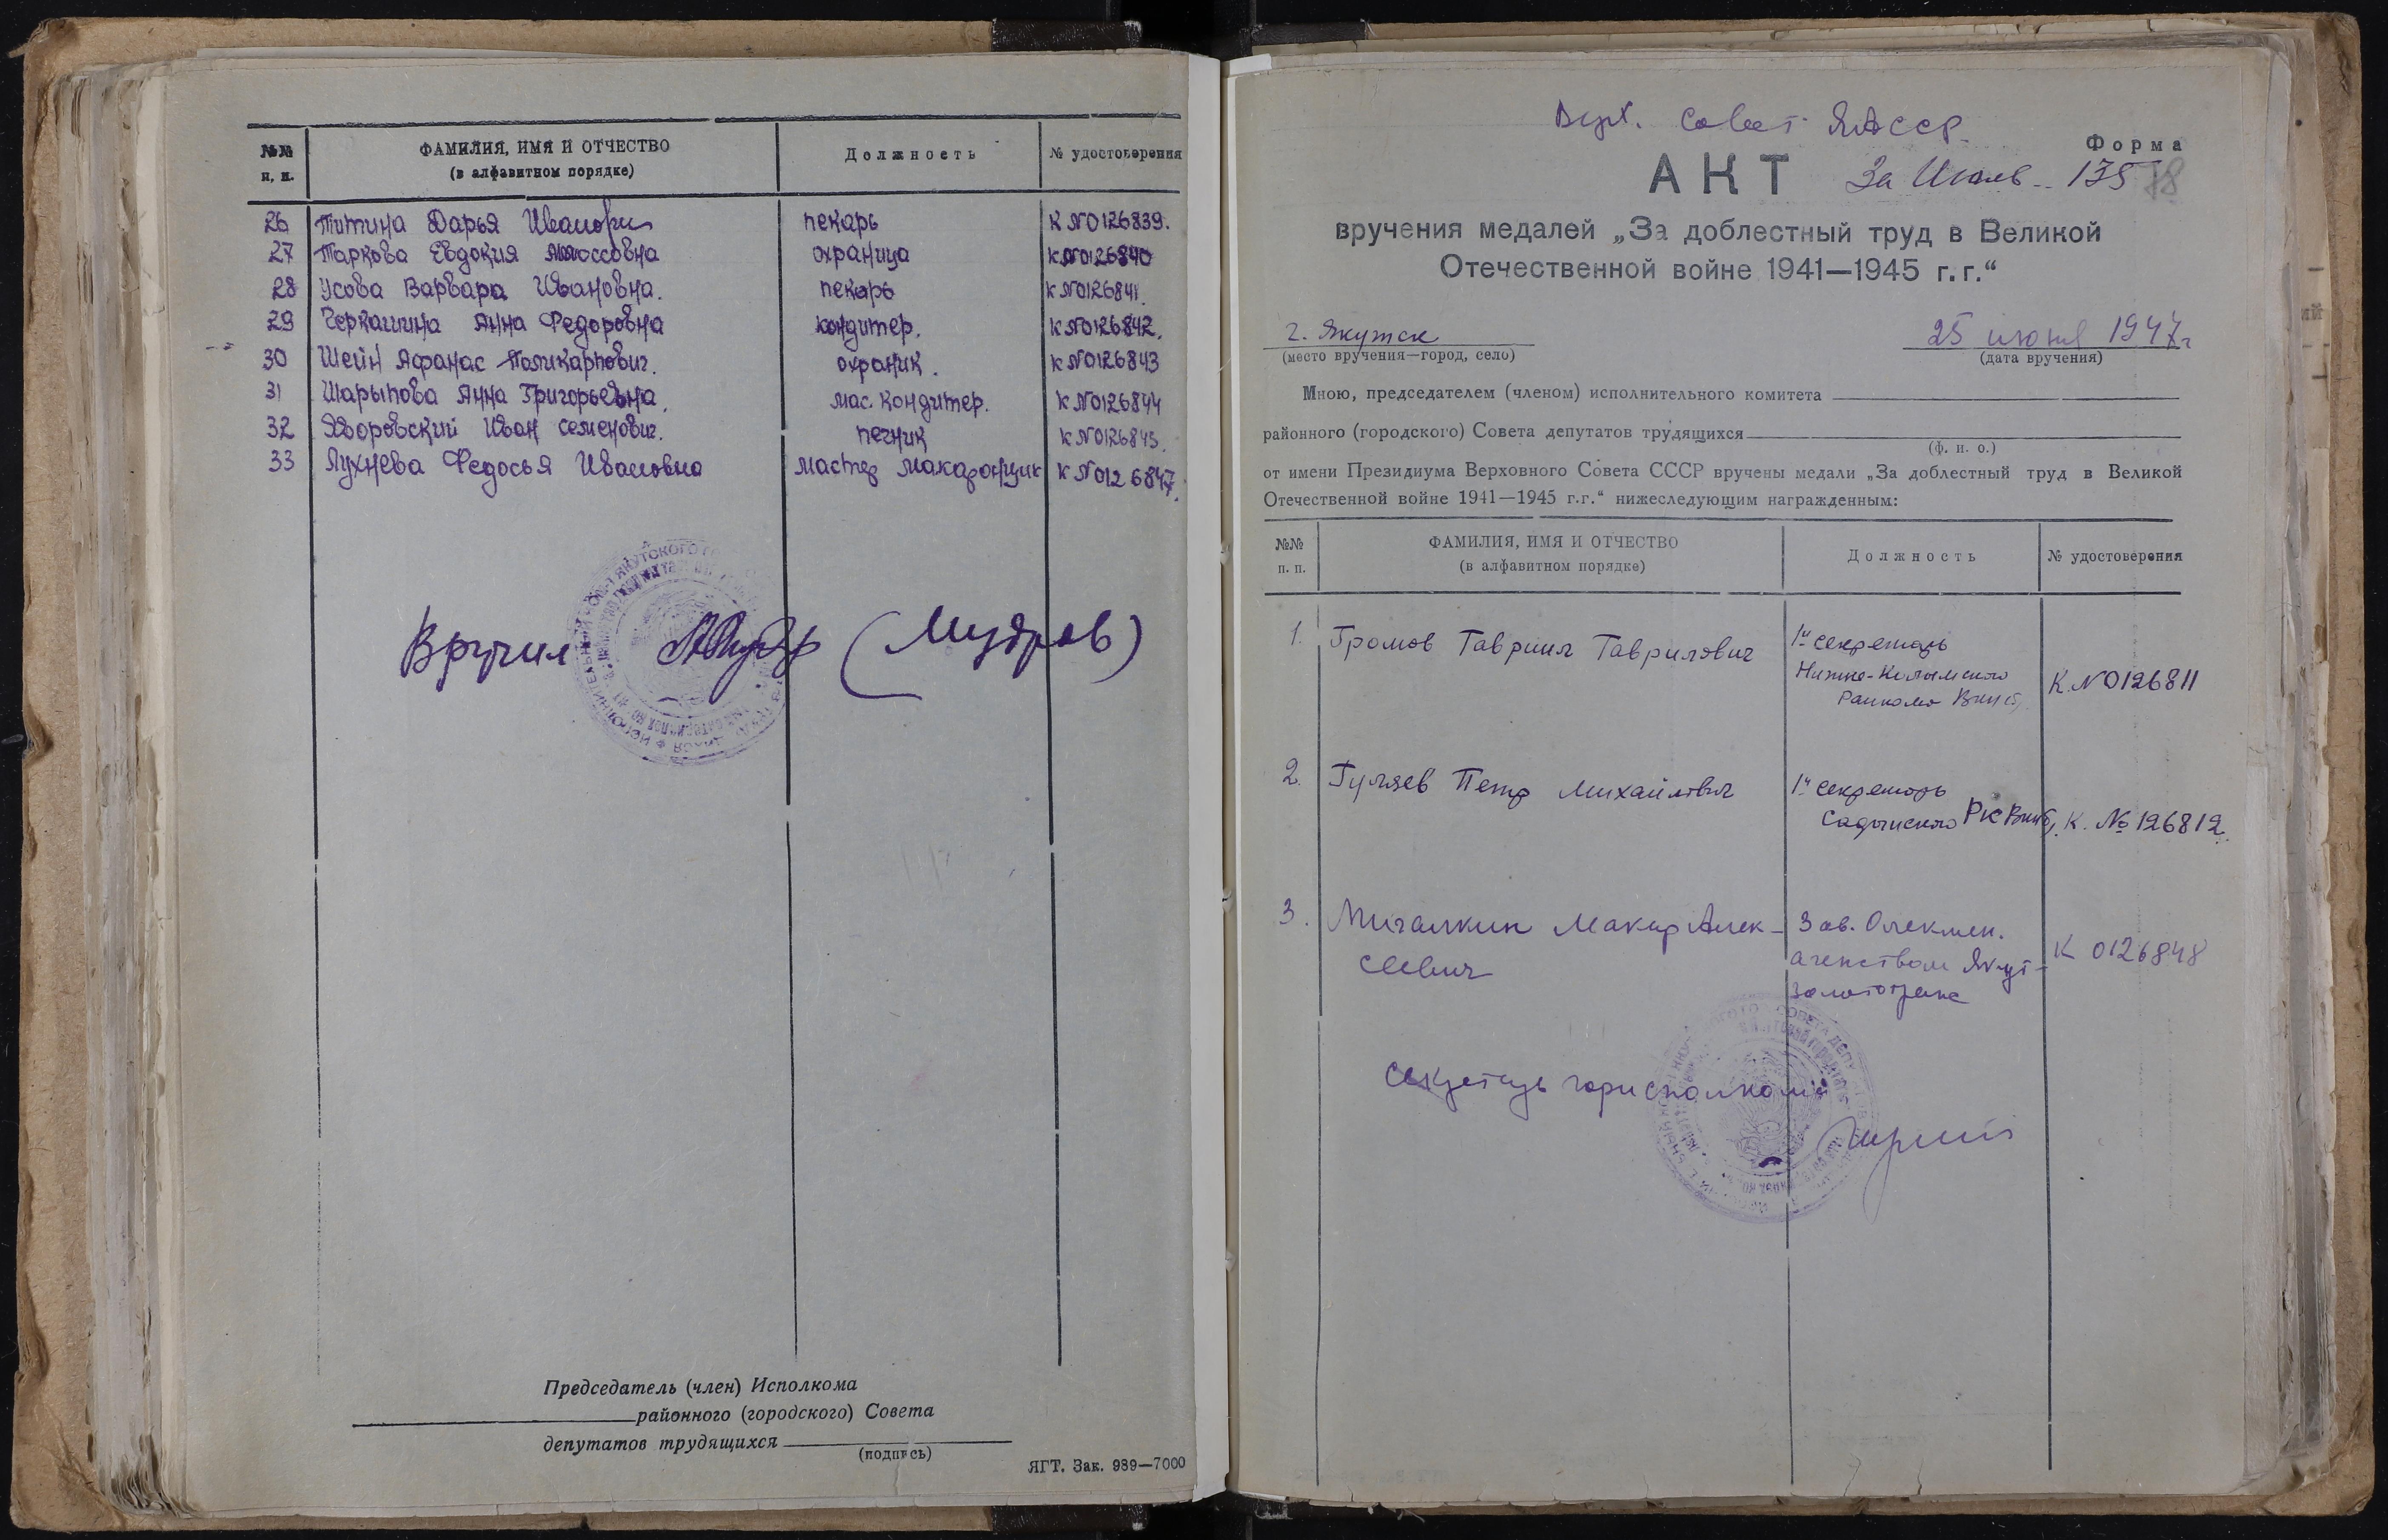 №№ п. п.
ФАМИЛИЯ, ИМЯ И ОТЧЕСТВО
(в алфавитном порядке)
Должность
№ удостоверения
26 Титина Дарья Ивановн пекарь К №0126839.
27 Таркова Евдокия охраница К №0126840
28 Усова Варвара Ивановна. пекарь К №0126841.
29 Черкашина Анна Федоровна кондитер. К №0126842.
30 Шейн Афанас Поликарпович. охраник. К №0126843
31 Шарыпова Анна Григорьевна. мас. кондитер. К №0126844
32 Яворовский Иван Семенович. печник К №0126845.
33 Лухнева Федосья Ивановна мастер макаронщик К №0126847.
Вручил (Мудров)
Председатель (член) Исполкома
районного (городского) Совета
депутатов трудящихся
(подпись)
ЯГТ. Зак. 989—7000
Верх. Совет ЯАССР.
Форма
АКТ За Июль
вручения медалей „За доблестный труд в Великой
Отечественной войне 1941—1945 г.г.“
г. Якутск
25 июля 1947г
(место вручения—город, село)
(дата вручения)
Мною, председателем (членом) исполнительного комитета
районного (городского) Совета депутатов трудящихся
(ф. и. о.)
от имени Президиума Верховного Совета СССР вручены медали „За доблестный труд в Великой
Отечественной войне 1941—1945 г.г.“ нижеследующим награжденным:
№№ п. п.
ФАМИЛИЯ, ИМЯ И ОТЧЕСТВО
(в алфавитном порядке)
Должность
№ удостоверения
1. Громов Гавриил Гаврилович 1й секретарь
Нижне-Колымского
Райкома ВКП(б)
К. №0126811
2. Гуляев Петр Михайлович 1й секретарь
Садынского РК ВКП(б). К. № 126812.
3. Мигалкин Макар Алек-
сеевич
Зав. Олекмин.
агенством Якут-
золототранс
К 0126848
Секретарь горисполкома